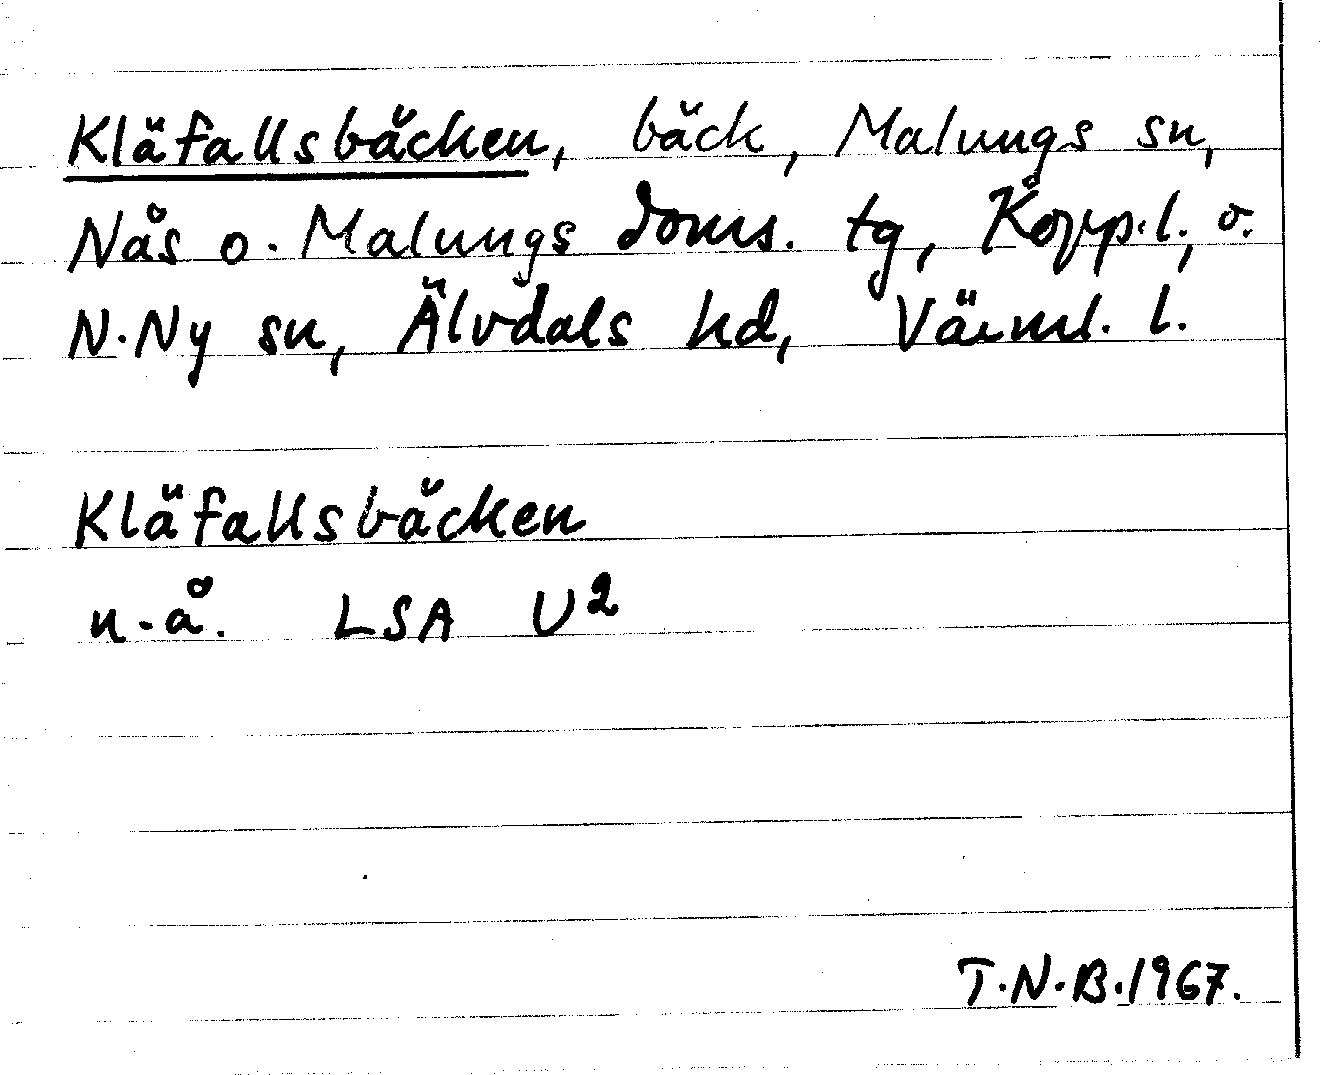 Kläfallsbäcken, bäck, Malungs sn,
Nås o. Malungs doms. tg, Kopp.l., o.
N.Ny sn, Älvdals hd, Värml. l.
Kläfallsbäcken
u.å. LSA U2
T.N.B.1967.